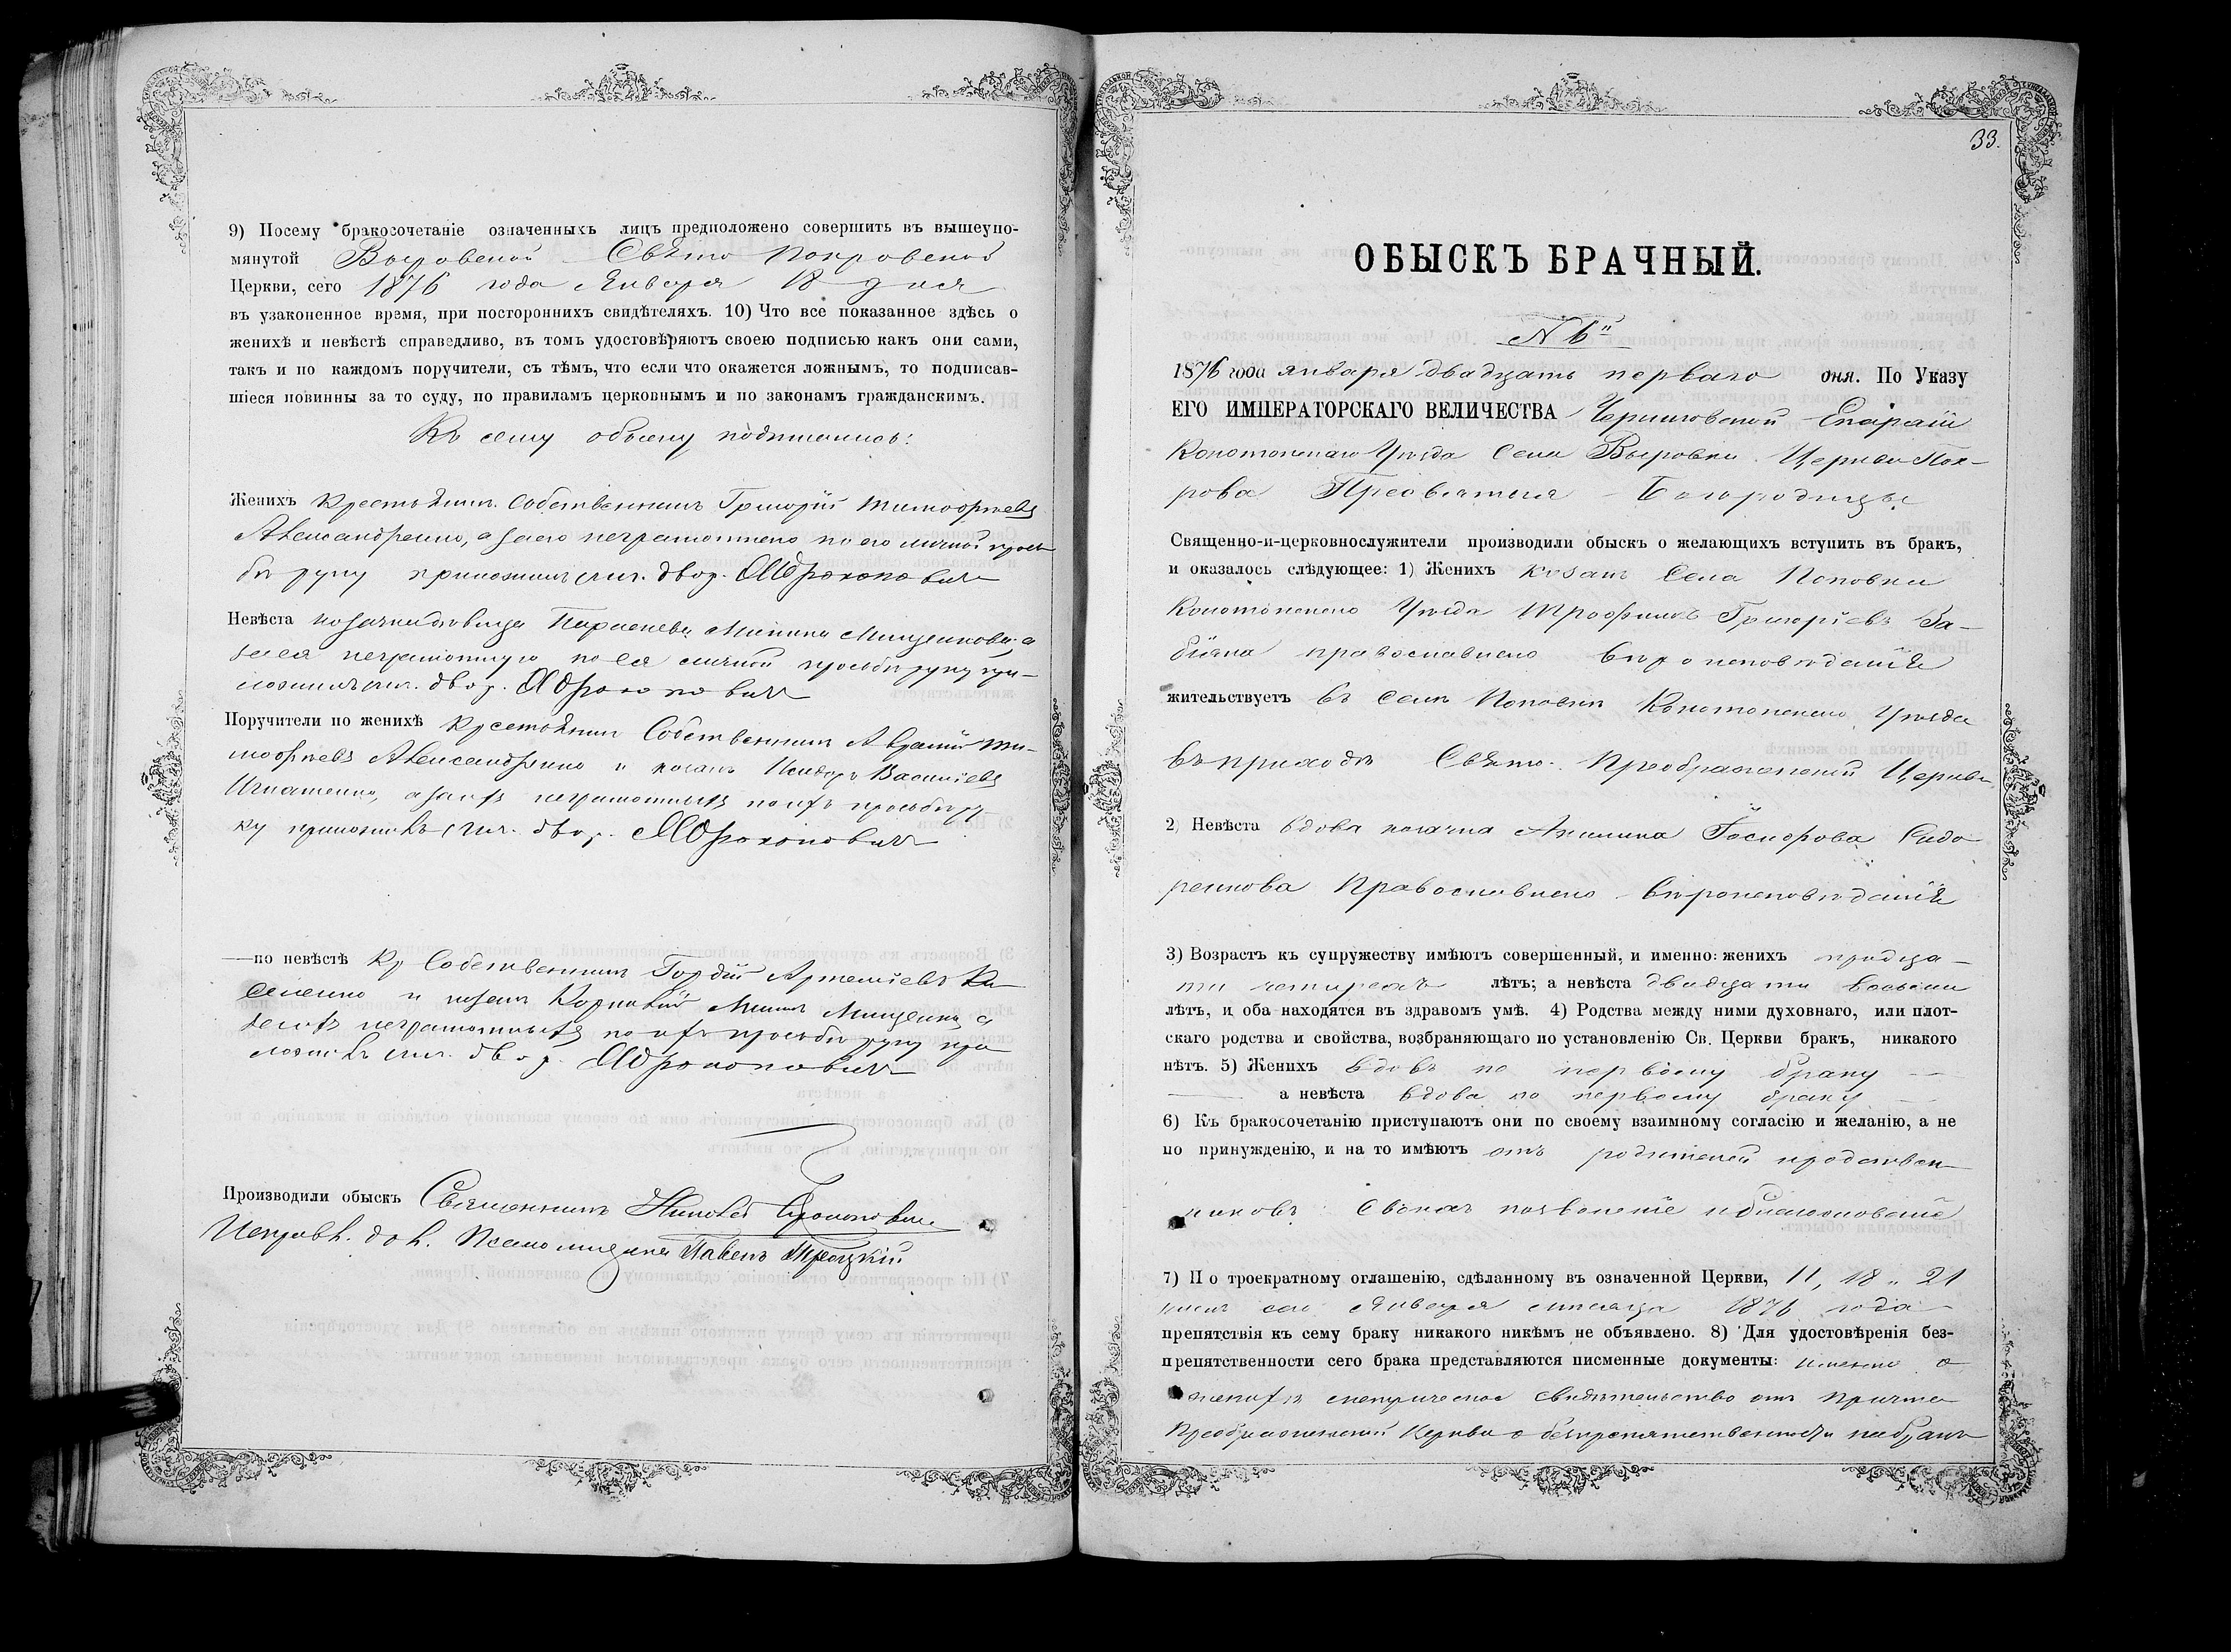 9) Посему бракосочетаніе означенныхъ лицъ предположено совершить въ вышеупо-
мянутой Выровской Свято Покровской
Церкви, сего 1876 года Января 18 дня
въ узаконенное время, при постороннихъ свидѣтеляхъ. 10) Что все показанное здѣсь о
женихѣ и невѣстѣ справедливо, въ томъ удостовѣряютъ своею подписью какъ они сами,
такъ и по каждомъ поручители, съ тѣмъ, что если что окажется ложнымъ, то подписав-
шіеся повинны за то суду, по правиламъ церковнымъ и по законамъ гражданскимъ.
Къ сему обыску подписались:
Женихъ Крестьянинъ Собственникъ Григорій Тимофѣевъ
Александренко, а за него неграмотнаго по его личной прось-
бѣ руку приложилъ двор. Прокоповичъ
Невѣста козачка вдовица Параскева Минина Мищенкова, а
за нея неграмотную по ея личной просьбѣ руку при-
ложилъ двор. Прокоповичъ
Поручители по женихѣ Крестьянин Собственникъ Ти-
мофѣевъ Александренко и козакъ Исидоръ Васильевъ
Игнатенко, а за ихъ неграмотныхъ по ихъ просьбѣ ру-
ку приложилъ двор. Прокоповичъ
—по невѣстѣ Кр Собственникъ Гордій Артемьевъ
и козакъ Корнилій Мининъ Мищенко, а
за ихъ неграмотныхъ по ихъ просьбѣ руку при
ложилъ двор. Прокоповичъ
Производили обыскъ Священникъ Николай Прокоповичъ
Исправл. дол. Псаломщика Павелъ Троицкій
33.
ОБЫСКЪ БРАЧНЫЙ.
N 6"
1876 года января двадцать перваго дня. По Указу
ЕГО ИМПЕРАТОРСКАГО ВЕЛИЧЕСТВА Черниговской Епархіи
Конотопскаго Уѣзда Села Выровки Церкви Пок-
рова Пресвятыя Богородицы
Священно-и-церковнослужители производили обыскъ о желающихъ вступить въ бракъ,
и оказалось слѣдующее: 1) Женихъ козакъ Села Поповки
Конотопскаго Уѣзда Трофимъ Григорьевъ
православнаго вѣроисповѣданія
жительствуетъ въ селѣ Поповкѣ Конотопскаго Уѣзда
въ приходѣ Свято Преображенской Церкви
2) Невѣста вдова козачка Акилина Сидо
ренкова Православнаго вѣроисповѣданія
3) Возрастъ къ супружеству имѣютъ совершенный, и именно: женихъ тридца-
ти четырехъ лѣтъ; а невѣста двадцати восьми
лѣтъ, и оба находятся въ здравомъ умѣ. 4) Родства между ними духовнаго, или плот-
скаго родства и свойства, возбраняющаго по установленію Св. Церкви бракъ, никакого
нѣтъ. 5) Женихъ вдовъ по первому браку
а невѣста вдова по первому браку
6) Къ бракосочетанію приступаютъ они по своему взаимному согласію и желанію, а не
по принужденію, и на то имѣютъ отъ родителей и родствен-
никовъ своихъ позволеніе и благословеніе
7) По троекратному оглашенію, сдѣланному въ означенной Церкви, 11, 18 " 21
числъ сего Января мѣсяца 1876 года
препятствія къ сему браку никакого никѣмъ не объявлено. 8) Для удостовѣренія без-
препятственности сего брака представляются писменные документы: именно о
женихѣ метрическое свидѣтельство отъ причта
Преображенской Церкви о безпрепятственности на бракъ